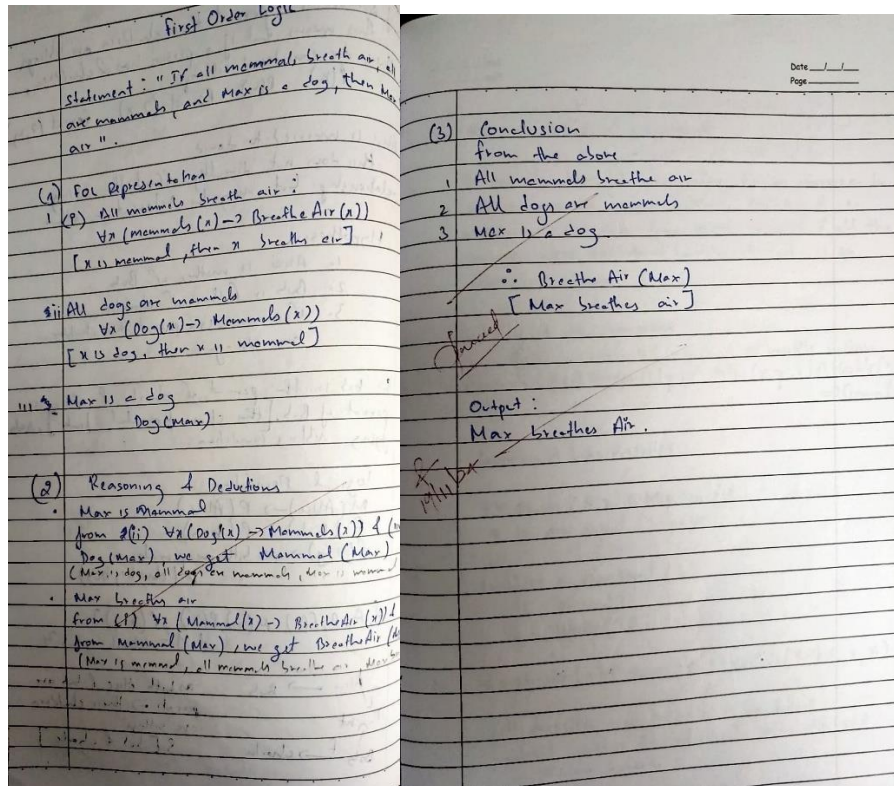 First Order Logic
Statement : "If all mammals breath air, all
are mammals, and Max is a dog, then Max
air".
(1) FOL Representation
i (P) All mammals breath air :
∀x (mammals(x) -> Breathe Air(x))
[x is mammal, then x breaths air]
ii All dogs are mammals
∀x (Dog(x) -> Mammals(x))
[x is dog, then x is mammal]
iii Max is a dog
Dog(Max).
(2) Reasoning & Deductions
• Max is Mammal
from (ii) ∀x (Dog(x) -> Mammals(x)) &
Dog(Max), we get Mammal (Max)
(Max is dog, all dogs are mammals, Max is mammal
• Max breaths air
from (i) ∀x (Mammal(x) -> BreatheAir (x)) &
from Mammal (Max), we get BreatheAir
(Max is mammal, all mammals breathe air, Max
Date __/__/__
Page
(3) Conclusion
from the above
1 All mammals breathe air
2 All dogs are mammals
3 Max is a dog.
∴ Breathe Air (Max)
[Max breathes air]
Output :
Max breathes Air.